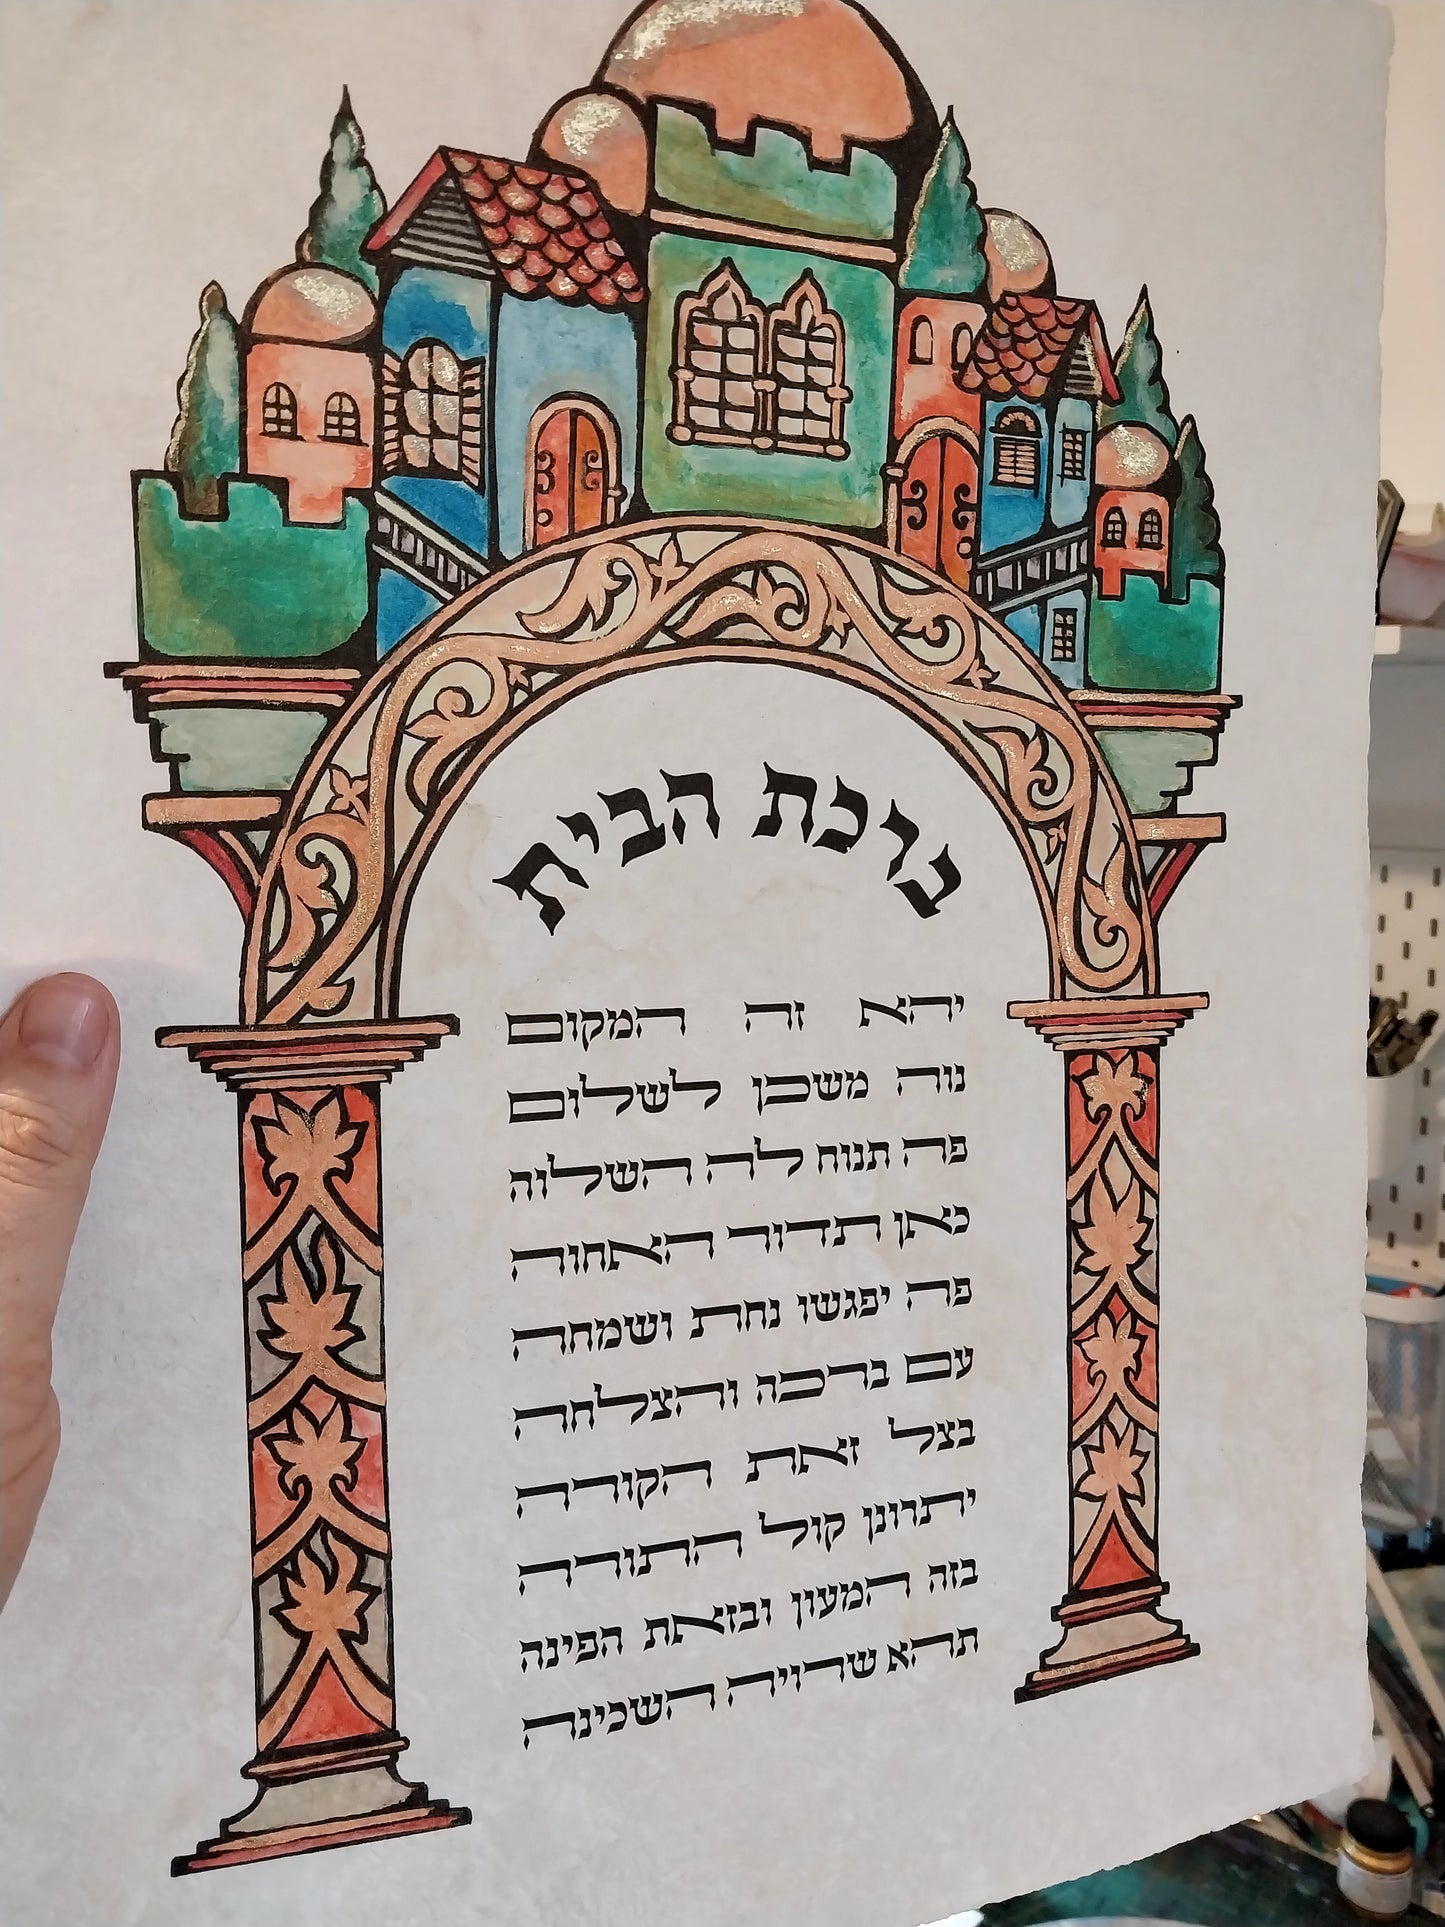 ברכת הבית
יהא זה המקום
נוה משכן לשלום
פה תנוח לה השלוה
כאן תדור האחוה
פה יפגשו נחת ושמחה
עם ברכה והצלחה
בצל זאת הקורה
יתרונן קול התורה
בזה המעון ובזאת הפינה
תהא שרויה השכינה